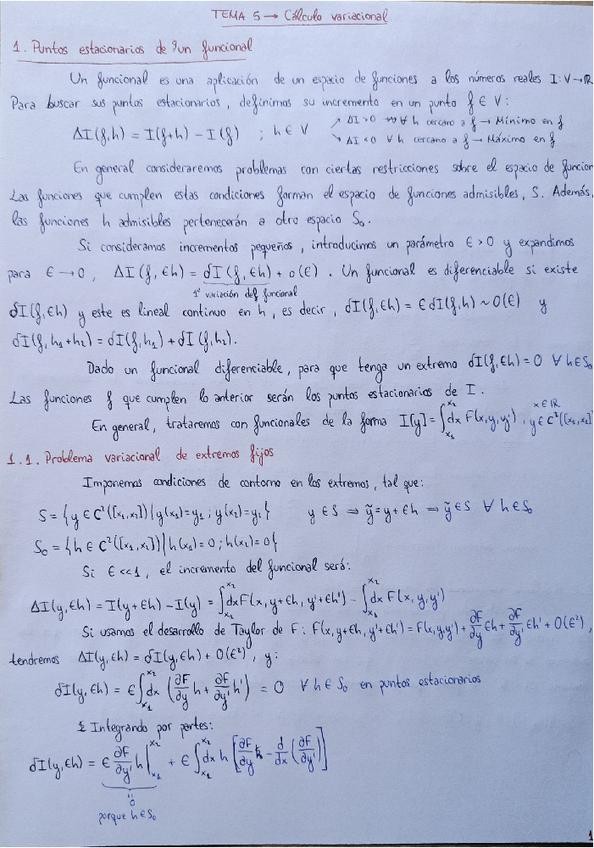 TEMA 5 → Cálculo variacional
1. Puntos estacionarios de un funcional
Un funcional es una aplicación de un espacio de funciones a los números reales I: V→ℝ
Para buscar sus puntos estacionarios, definimos su incremento en un punto f ∈ V:
ΔI(f,h) = I(f+h) - I(f) ; h ∈ V
↗ ΔI>0 ∀ h cercano a f → Mínimo en f
↘ ΔI<0 ∀ h cercano a f → Máximo en f
En general consideraremos problemas con ciertas restricciones sobre el espacio de funcion
Las funciones que cumplen estas condiciones forman el espacio de funciones admisibles, S. Además,
las funciones h admisibles pertenecerán a otro espacio S₀.
Si consideramos incrementos pequeños, introducimos un parámetro ϵ>0 y expandimos
para ϵ→0, ΔI(f,ϵh) = δI(f,ϵh) + o(ϵ). Un funcional es diferenciable si existe
1ª variación del funcional
δI(f,ϵh) y este es lineal continuo en h, es decir, δI(f,ϵh) = ϵδI(f,h) ~ O(ϵ) y
δI(f,h₁+h₂) = δI(f,h₁) + δI(f,h₂).
Dado un funcional diferenciable, para que tenga un extremo δI(f,ϵh) = 0 ∀ h∈S₀
Las funciones f que cumplen lo anterior serán los puntos estacionarios de I.
En general, trataremos con funcionales de la forma I[y] = ∫_{x₁}^{x₂} dx F(x,y,y'), x∈ℝ y∈C²([x₁,x₂])
1.1. Problema variacional de extremos fijos
Imponemos condiciones de contorno en los extremos, tal que:
S = {y ∈ C²([x₁,x₂]) / y(x₁)=y₁ ; y(x₂)=y₂} y∈S ⇒ ỹ=y+ϵh ⇒ ỹ∈S ∀ h∈S₀
S₀ = {h ∈ C²([x₁,x₂]) / h(x₁)=0 ; h(x₂)=0}
Si ϵ<<1, el incremento del funcional será:
ΔI(y,ϵh) = I(y+ϵh) - I(y) = ∫_{x₁}^{x₂} dx F(x, y+ϵh, y'+ϵh') - ∫_{x₁}^{x₂} dx F(x,y,y')
Si usamos el desarrollo de Taylor de F: F(x,y+ϵh,y'+ϵh') = F(x,y,y') + ∂F/∂y ϵh + ∂F/∂y' ϵh' + O(ϵ²),
tendremos ΔI(y,ϵh) = δI(y,ϵh) + O(ϵ²) y:
δI(y,ϵh) = ϵ ∫_{x₁}^{x₂} dx (∂F/∂y h + ∂F/∂y' h') = 0 ∀ h∈S₀ en puntos estacionarios
Integrando por partes:
δI(y,ϵh) = ϵ ∂F/∂y' h |_{x₁}^{x₂} + ϵ ∫_{x₁}^{x₂} dx h [∂F/∂y - d/dx (∂F/∂y')]
= 0
porque h∈S₀
1